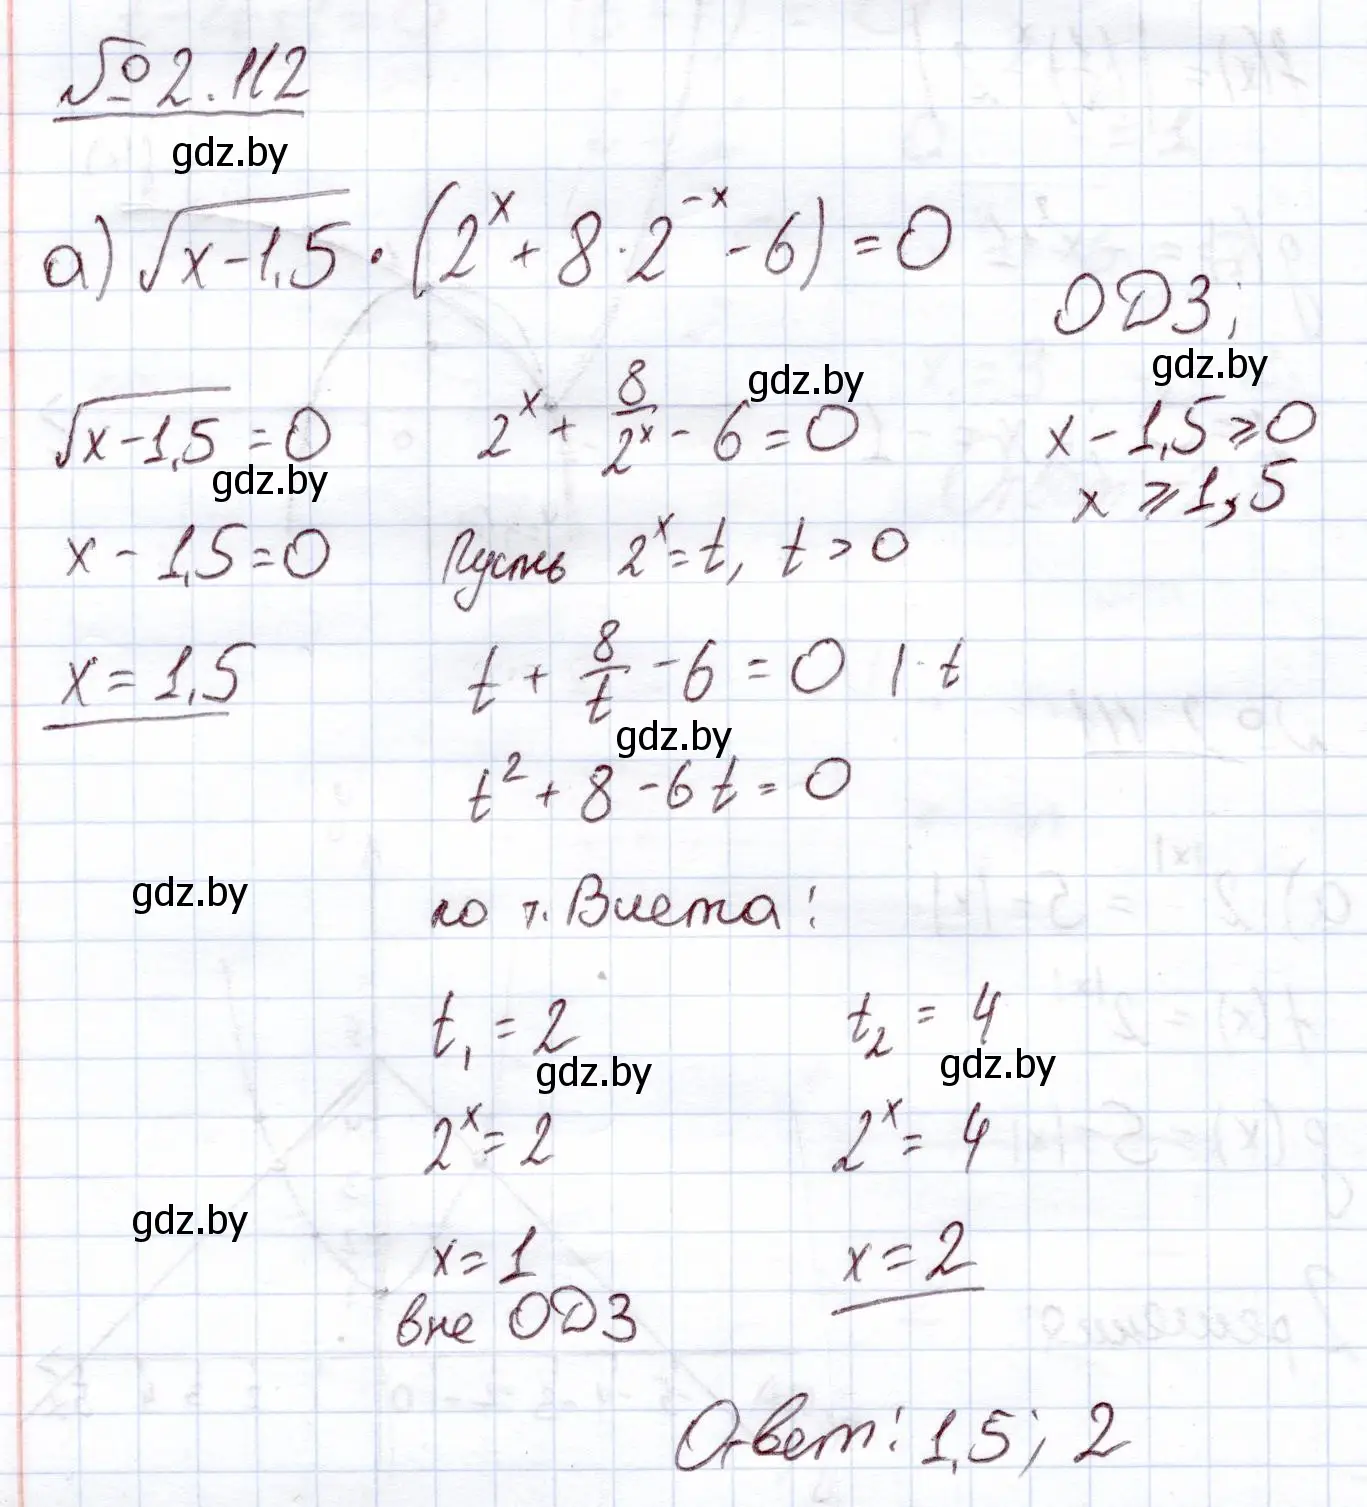 № 2.112
gdz.by
а) √(x-1,5) · (2^x + 8·2^(-x) - 6) = 0
ОДЗ;
gdz.by
√(x-1,5) = 0
gdz.by
x - 1,5 = 0
x = 1,5
gdz.by
2^x + 8/2^x - 6 = 0
x - 1,5 ≥ 0
x ≥ 1,5
Пусть 2^x = t, t > 0
t + 8/t - 6 = 0 | · t
gdz.by
t² + 8 - 6t = 0
gdz.by
по т. Виета:
t₁ = 2 t₂ = 4
gdz.by gdz.by
2^x = 2 2^x = 4
gdz.by
x = 1 x = 2
вне ОДЗ
Ответ: 1,5; 2